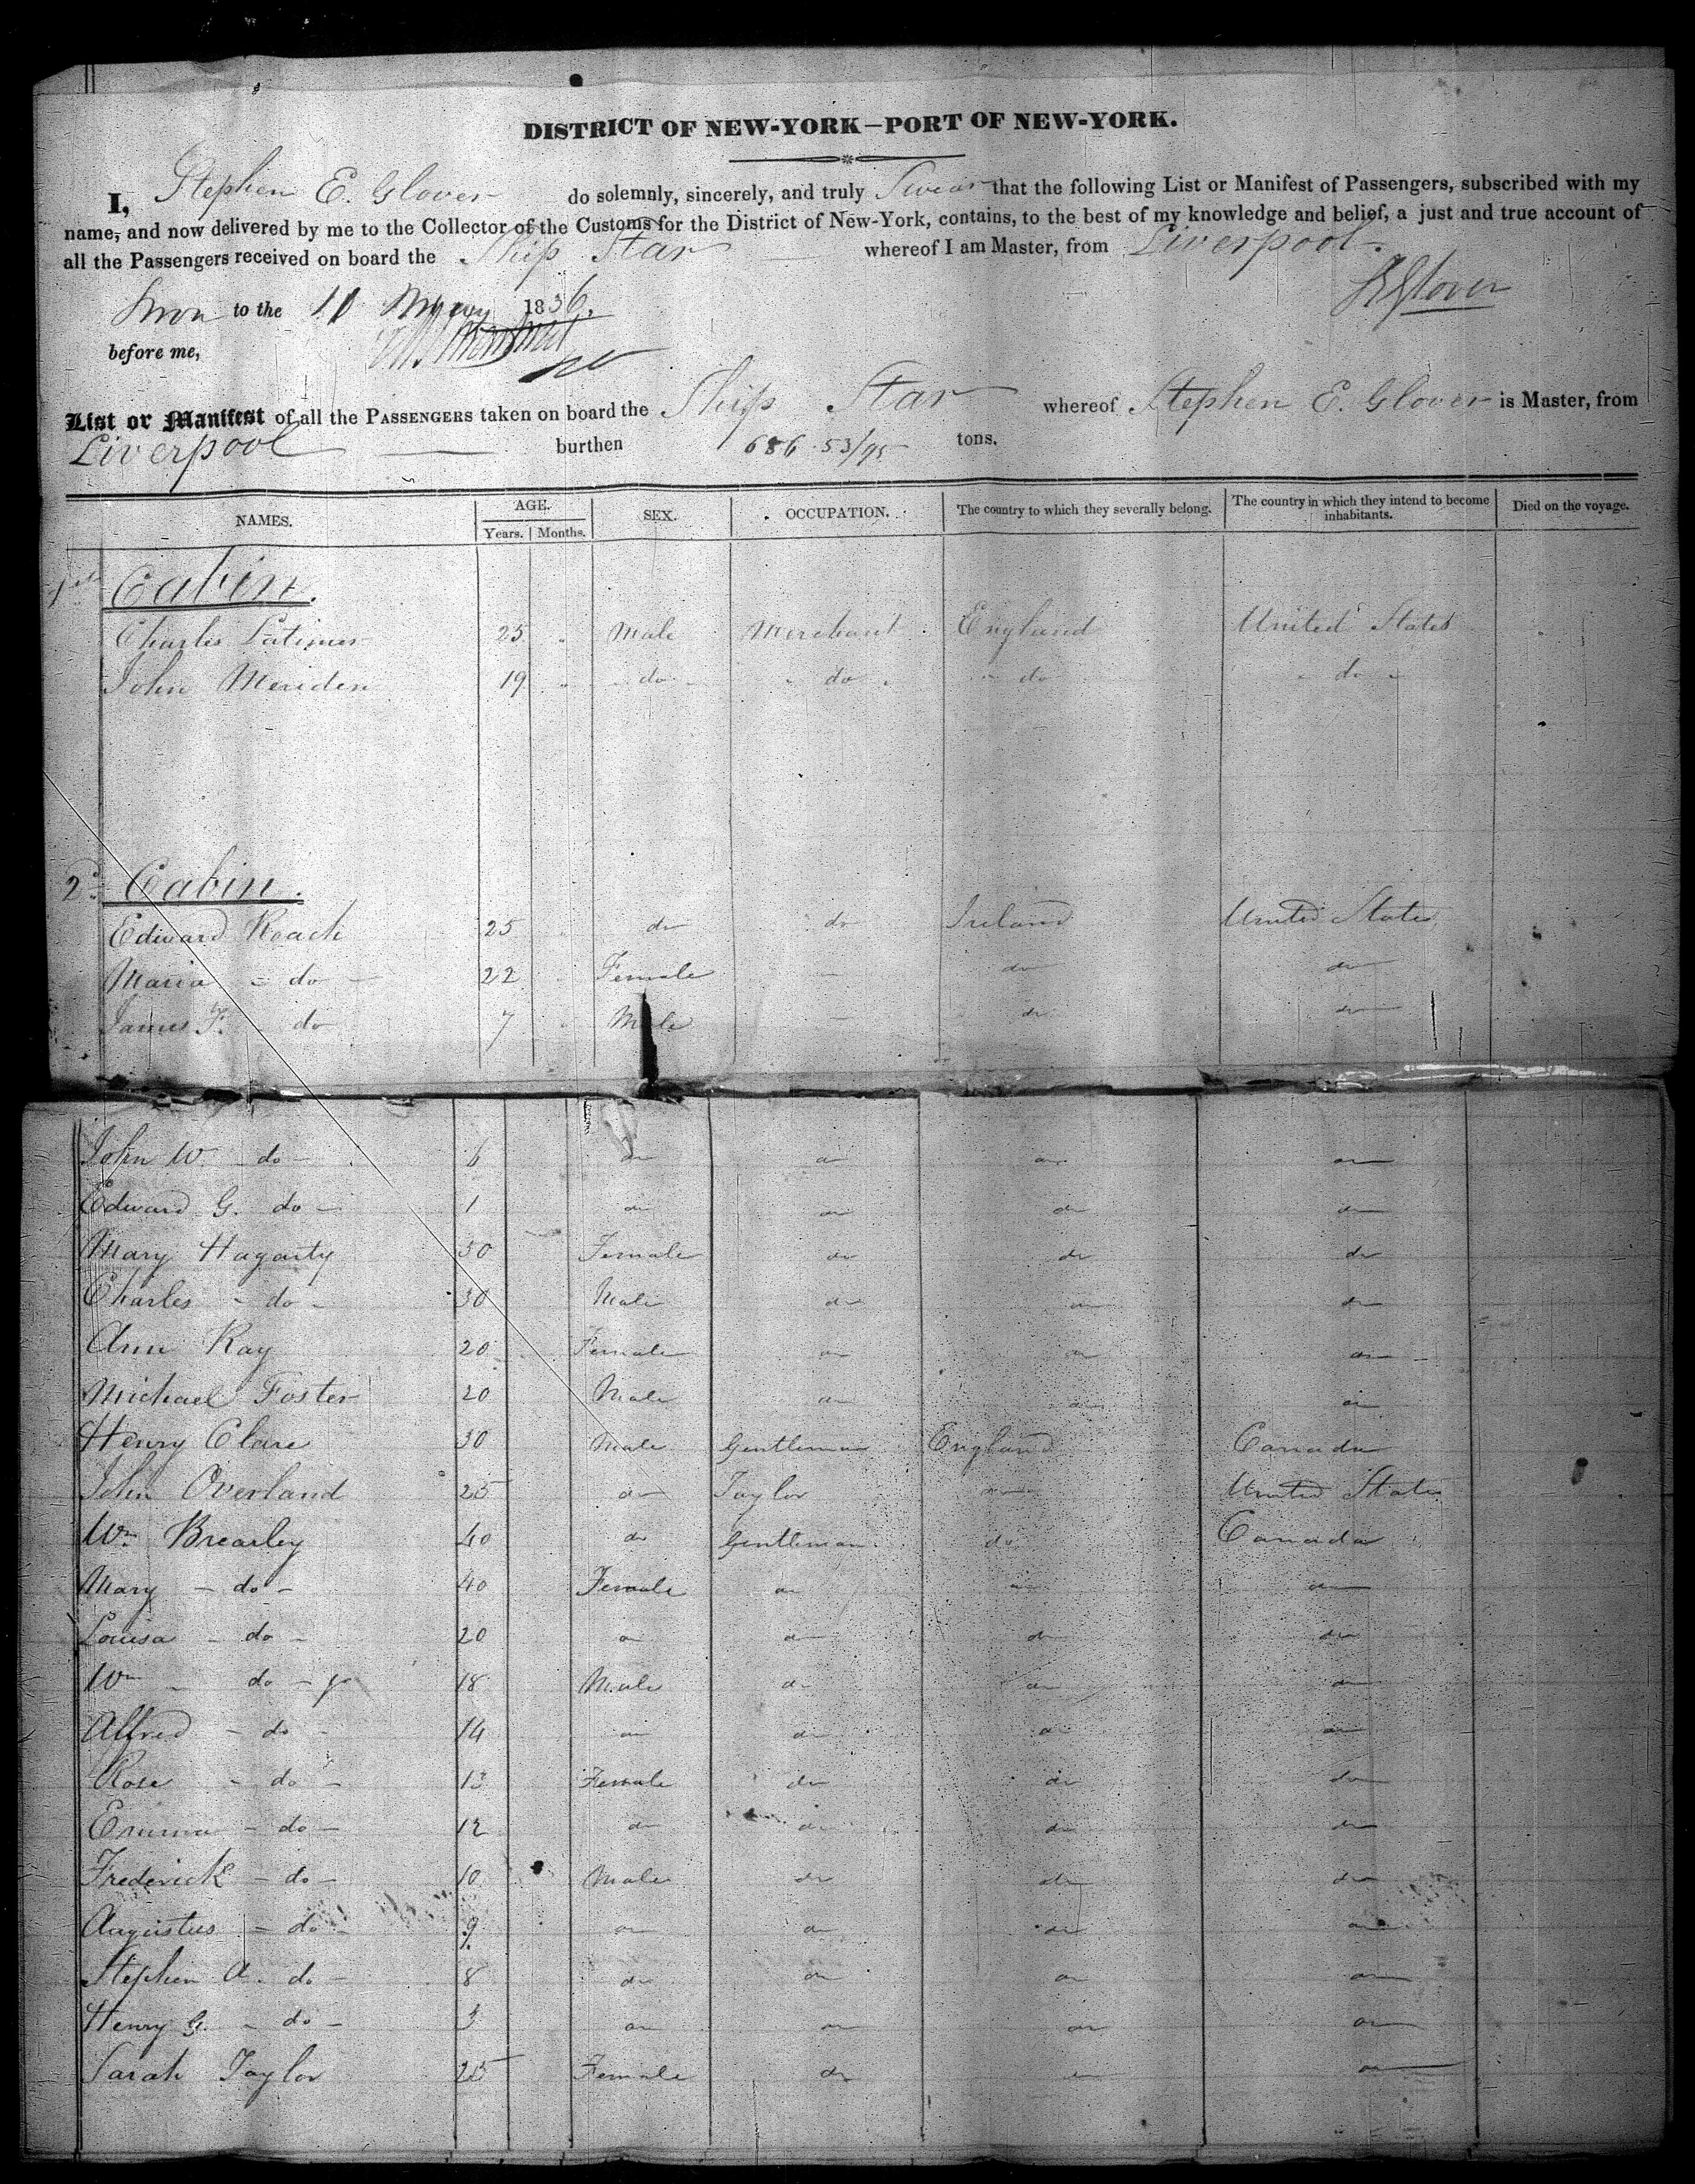 DISTRICT OF NEW-YORK—PORT OF NEW-YORK.
I, Stephen E. Glover do solemnly, sincerely, and truly Swear that the following List or Manifest of Passengers, subscribed with my
name, and now delivered by me to the Collector of the Customs for the District of New-York, contains, to the best of my knowledge and belief, a just and true account of
all the Passengers received on board the Ship Star whereof I am Master, from Liverpool.
Sworn to the 1836. SGlover
before me,
List or Manifest of all the PASSENGERS taken on board the Ship Star whereof Stephen E. Glover is Master, from
Liverpool burthen 686 53/95 tons.
NAMES. AGE. SEX. OCCUPATION. The country to which they severally belong. The country in which they intend to become inhabitants. Died on the voyage.
Years. Months.
1st Cabin.
Charles Latimer 25 " Male Merchant England United States
John Meriden 19 " do do do do
2d Cabin.
Edward Roach 25 do do Ireland United States
Maria - do - 22 Female — do do
James F. do 7 Male — do do
John W. do - 6 do do do do
Edward G. do - 1 do do do do
Mary Hagarty 50 Female do do do
Charles - do - 30 Male do do do
Ann Kay 20 Female do do do
Michael Foster 20 Male do do do
Henry Clare 30 Male Gentleman England Canada
John Overland 25 do Taylor do United States
Wm Brearley 40 do Gentleman do Canada
Mary - do - 40 Female do do do
Louisa - do - 20 do do do do
Wm - do - jr 18 Male do do do
Alfred - do - 14 do do do do
Rose - do - 13 Female do do do
Emma - do - 12 do do do do
Frederick - do - 10 Male do do do
Augustus - do - 9 do do do do
Stephen A. do - 8 do do do do
Henry G. - do - 3 do do do do
Sarah Taylor 25 Female do do do